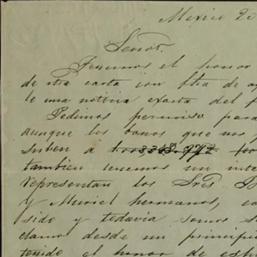 Mexico 20
Señor.
Tenemos el honor
de otra carta con fha de ay
le una noticia exacta del p
Pedimos permiso para
aunque los bonos que nos p
suben a
tambien tenemos un inte
representan los Sres
y Muriel hermanos, co
sido y todavia somos s
clamos desde un principi
tenido el honor de es